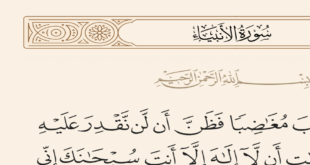 سُورَةُ الْأَنْبِيَاءِ
بِسْمِ اللَّهِ الرَّحْمَٰنِ الرَّحِيمِ
مُغَٰضِبًا فَظَنَّ أَن لَّن نَّقْدِرَ عَلَيْهِ
أَن لَّآ إِلَٰهَ إِلَّآ أَنتَ سُبْحَٰنَكَ إِنِّي